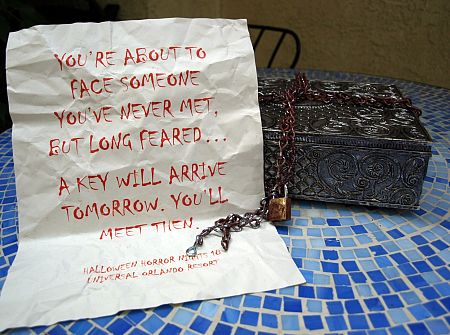 YOU'RE ABOUT TO
FACE SOMEONE
YOU'VE NEVER MET,
BUT LONG FEARED...
A KEY WILL ARRIVE
TOMORROW. YOU'LL
MEET THEN.
HALLOWEEN HORROR NIGHTS 18
UNIVERSAL ORLANDO RESORT